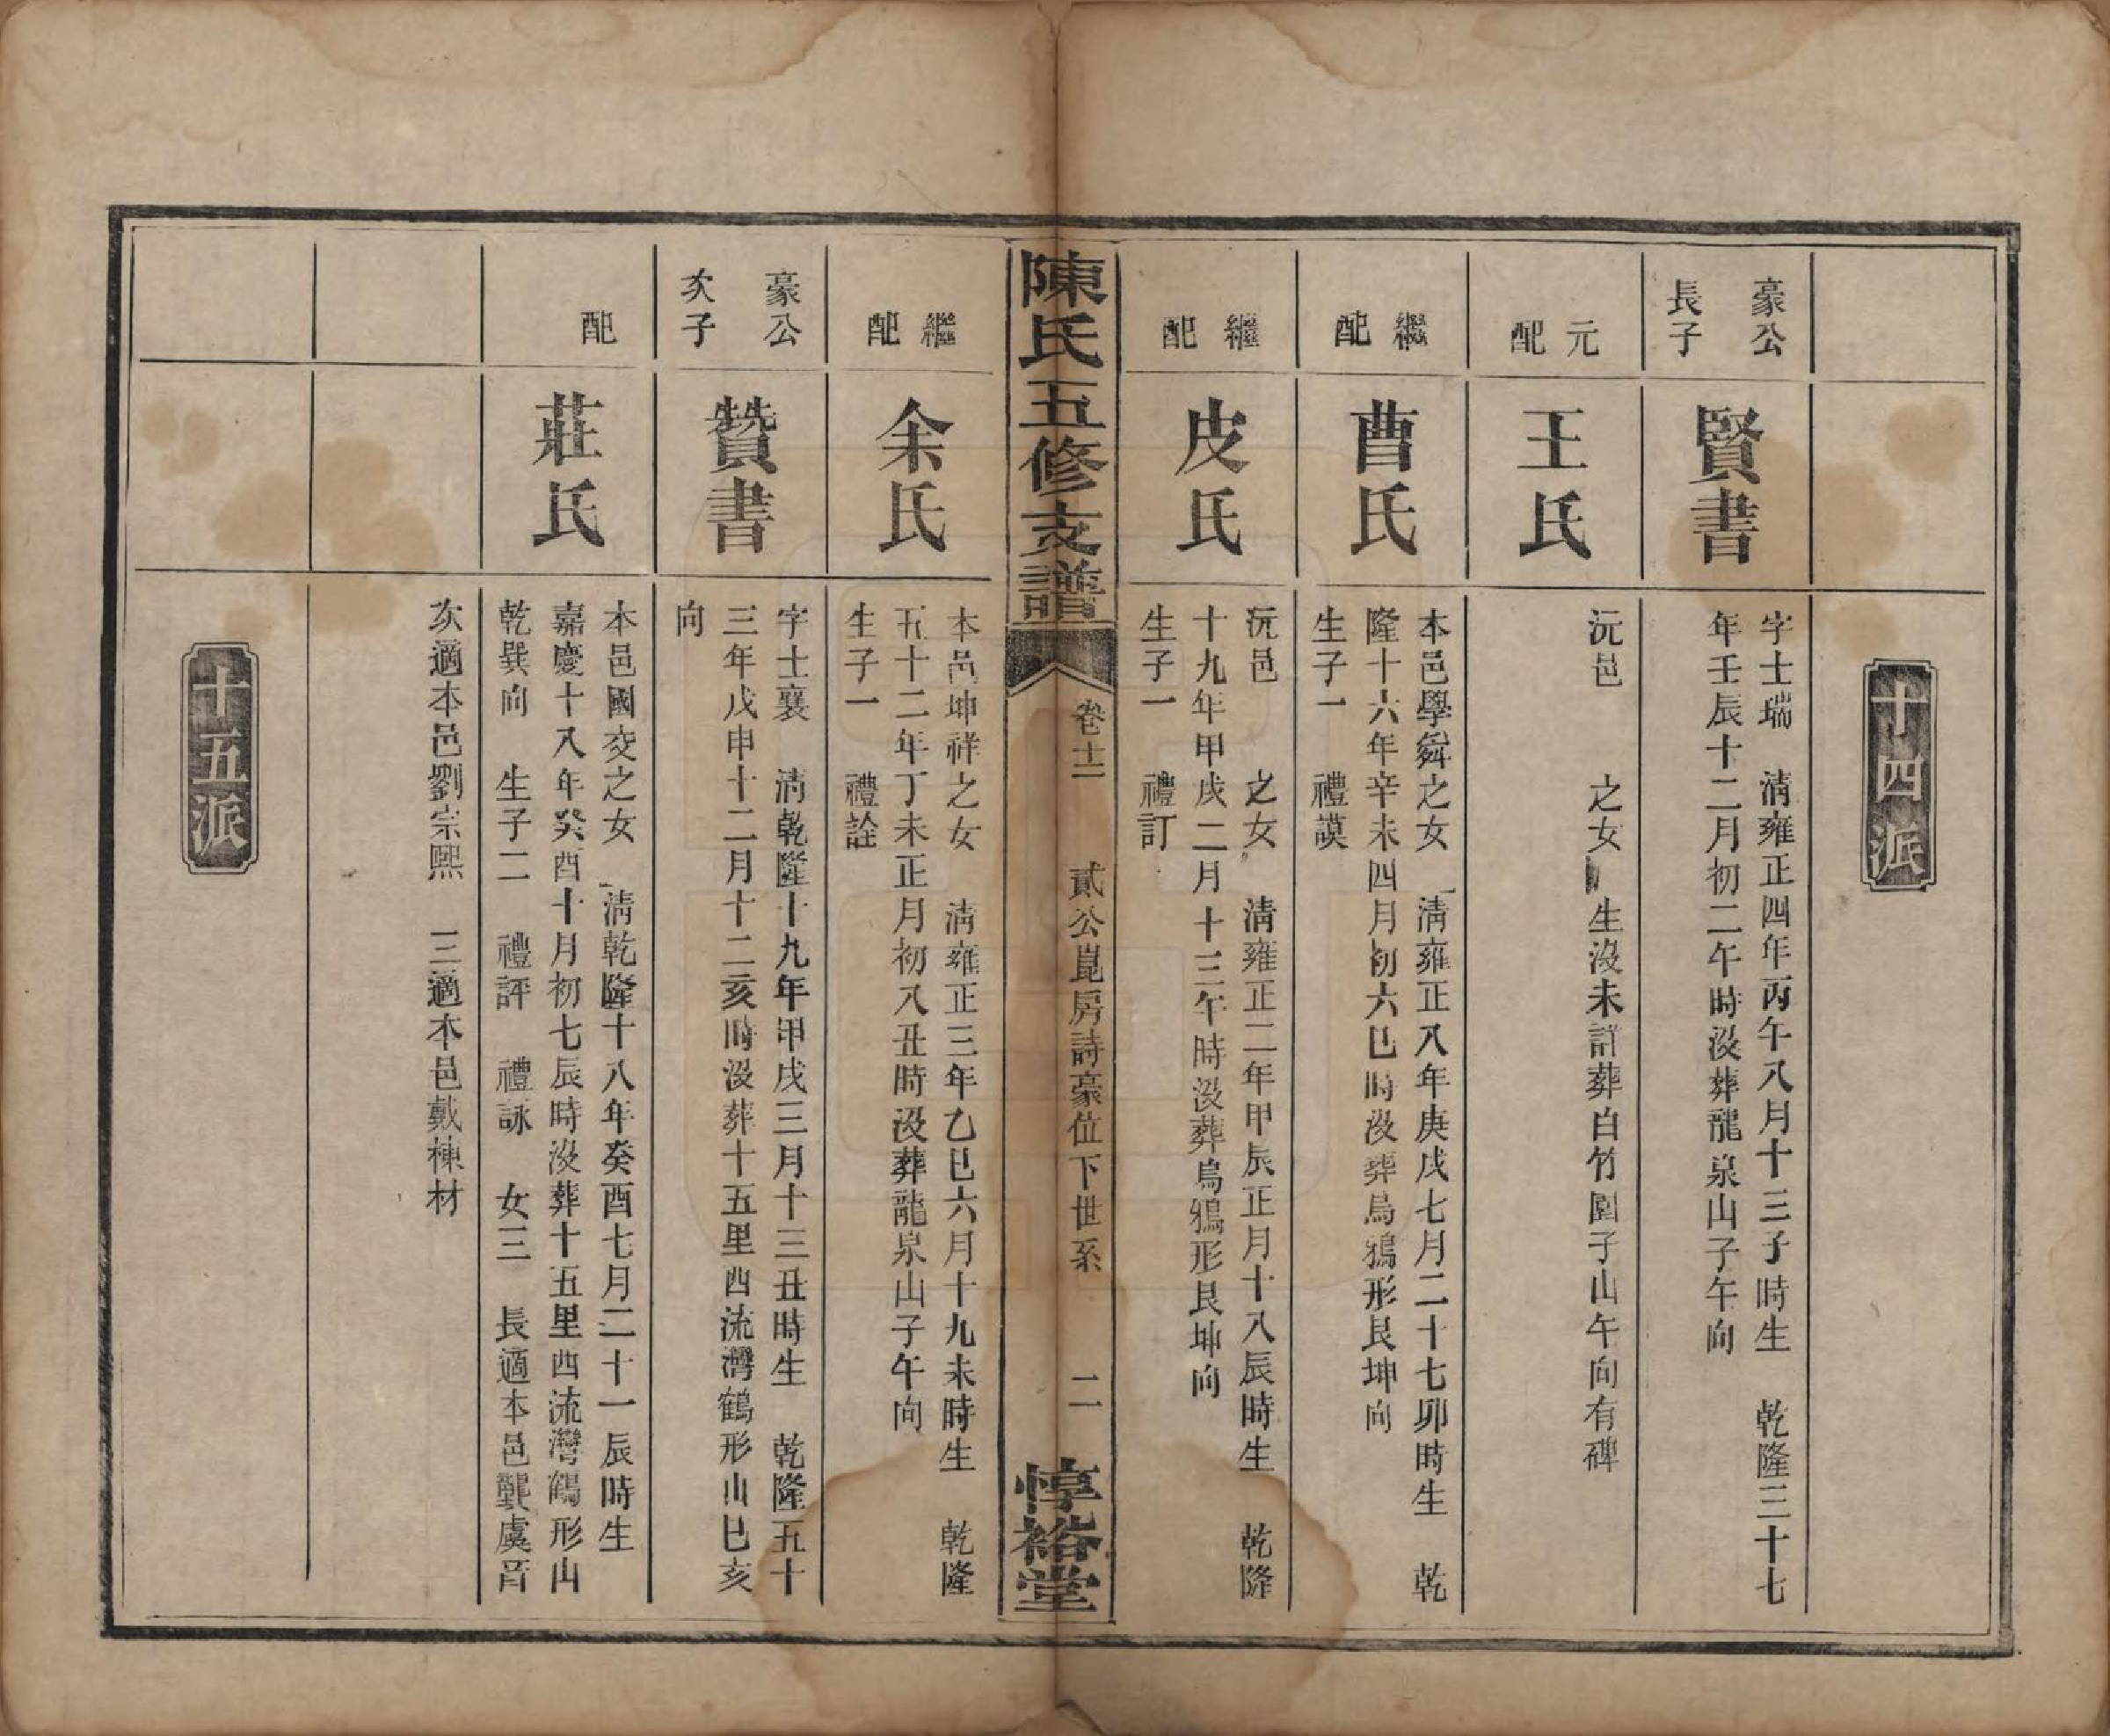 十四派
豪公
長子
賢書
字士瑞　清雍正四年丙午八月十三子時生　乾隆三十七
年壬辰十二月初二午時沒葬龍泉山子午向
元
配
王氏
沅邑　之女　生沒未詳葬白竹園子山午向有碑
繼
配
曹氏
本邑學舜之女　清雍正八年庚戌七月二十七卯時生　乾
隆十六年辛未四月初六巳時沒葬烏鴉形艮坤向
生子一　禮謨
繼
配
皮氏
沅邑　之女　清雍正二年甲辰正月十八辰時生　乾隆
十九年甲戌二月十三午時沒葬烏鴉形艮坤向
生子一　禮訂
陳氏五修支譜
卷十二　貳公崑房詩豪位下世系　二
惇裕堂
繼
配
余氏
本邑坤祥之女　清雍正三年乙巳六月十九未時生　乾隆
五十二年丁未正月初八丑時沒葬龍泉山子午向
生子一　禮詮
豪公
次子
贊書
字士襄　清乾隆十九年甲戌三月十三丑時生　乾隆五十
三年戊申十二月十二亥時沒葬十五里西流灣鶴形山巳亥
向
配
莊氏
本邑國交之女　清乾隆十八年癸酉七月二十一辰時生
嘉慶十八年癸酉十月初七辰時沒葬十五里西流灣鶴形山
乾巽向　生子二　禮評　禮詠　女三　長適本邑龔虞音
次適本邑劉宗熙　三適本邑戴棟材
十五派